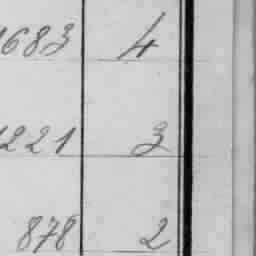 1683 4
1221 3
878 2